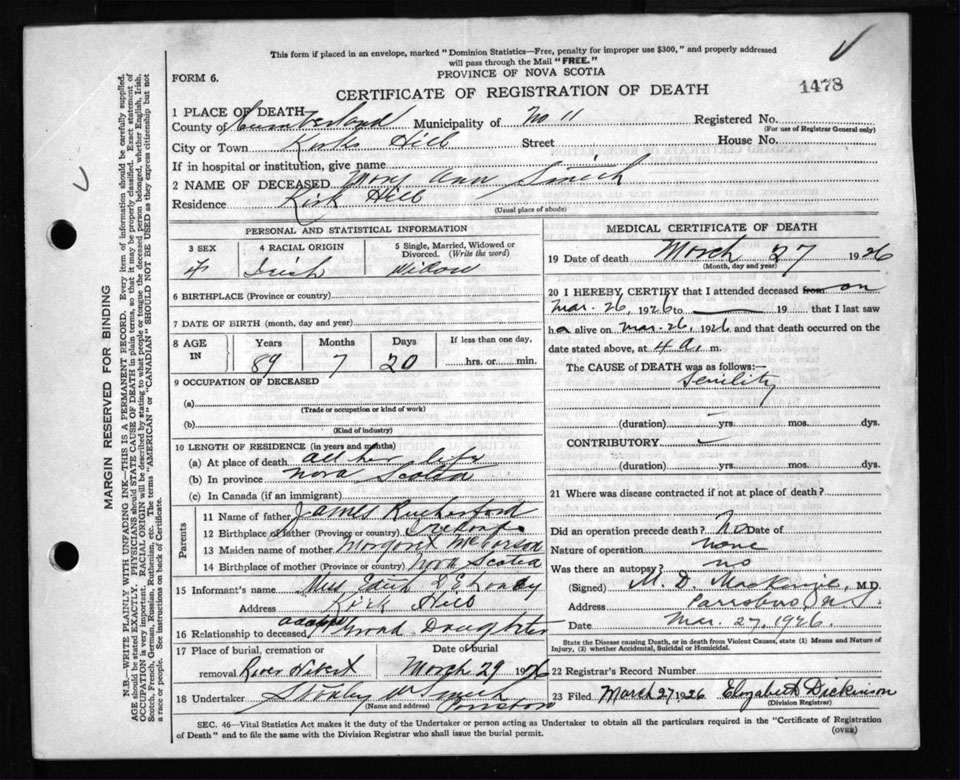 This form if placed in an envelope, marked "Dominion Statistics—Free, penalty for improper use $300," and properly addressed
will pass through the Mail "FREE."
PROVINCE OF NOVA SCOTIA
FORM 6.
CERTIFICATE OF REGISTRATION OF DEATH
1478
1 PLACE OF DEATH
County of Cumberland Municipality of No 11 Registered No.
(For use of Registrar General only)
City or Town Kirks Hill Street House No.
If in hospital or institution, give name
2 NAME OF DECEASED Mary Ann Smith
Residence Kirk Hill
(Usual place of abode)
PERSONAL AND STATISTICAL INFORMATION
3 SEX 4 RACIAL ORIGIN 5 Single, Married, Widowed or Divorced. (Write the word)
F Irish Widow
6 BIRTHPLACE (Province or country)
7 DATE OF BIRTH (month, day and year)
8 AGE IN Years Months Days If less than one day,
89 7 20 hrs. or min.
9 OCCUPATION OF DECEASED
(a)
(Trade or occupation or kind of work)
(b)
(Kind of industry)
10 LENGTH OF RESIDENCE (in years and months)
(a) At place of death all her life
(b) In province Nova Scotia
(c) In Canada (if an immigrant)
Parents
11 Name of father James Rutherford
12 Birthplace of father (Province or country)
13 Maiden name of mother Margaret
14 Birthplace of mother (Province or country) Nova Scotia
15 Informant's name Miss Edith
Address Kirk Hill
16 Relationship to deceased adopted Grand Daughter
17 Place of burial, cremation or removal Date of burial
River Hebert March 29 1926
18 Undertaker Smith
(Name and address)
MEDICAL CERTIFICATE OF DEATH
19 Date of death March 27 1926
(Month, day and year)
20 I HEREBY CERTIFY that I attended deceased from on
Mar. 26, 1926 to 19 that I last saw
her alive on Mar. 26, 1926 and that death occurred on the
date stated above, at 4 a. m.
The CAUSE OF DEATH was as follows:—
Senility
(duration) yrs. mos. dys.
CONTRIBUTORY
(duration) yrs. mos. dys.
21 Where was disease contracted if not at place of death?
Did an operation precede death? No Date of
Nature of operation none
Was there an autopsy? no
(Signed) M. D. MacKenzie, M.D.
Address Parrsboro N S.
Date Mar. 27, 1926.
State the Disease causing Death, or in death from Violent Causes, state (1) Means and Nature of Injury, (2) whether Accidental, Suicidal or Homicidal.
22 Registrar's Record Number
23 Filed March 27 1926 Elizabeth Dickinson
(Division Registrar)
SEC. 46—Vital Statistics Act makes it the duty of the Undertaker or person acting as Undertaker to obtain all the particulars required in the "Certificate of Registration
of Death" and to file the same with the Division Registrar who shall issue the burial permit.
(OVER)
MARGIN RESERVED FOR BINDING
N.B.—WRITE PLAINLY WITH UNFADING INK—THIS IS A PERMANENT RECORD. Every item of information should be carefully supplied.
AGE should be stated EXACTLY. PHYSICIANS should STATE CAUSE OF DEATH in plain terms, so that it may be properly classified. Exact statement of
OCCUPATION is very important. RACIAL ORIGIN will be described by stating to what people or tongue the deceased person belonged, whether English, Irish,
Scotch, French, German, Russian, Ruthenian, etc. The terms "AMERICAN" or "CANADIAN" SHOULD NOT BE USED as they express citizenship but not
a race or people. See instructions on back of Certificate.